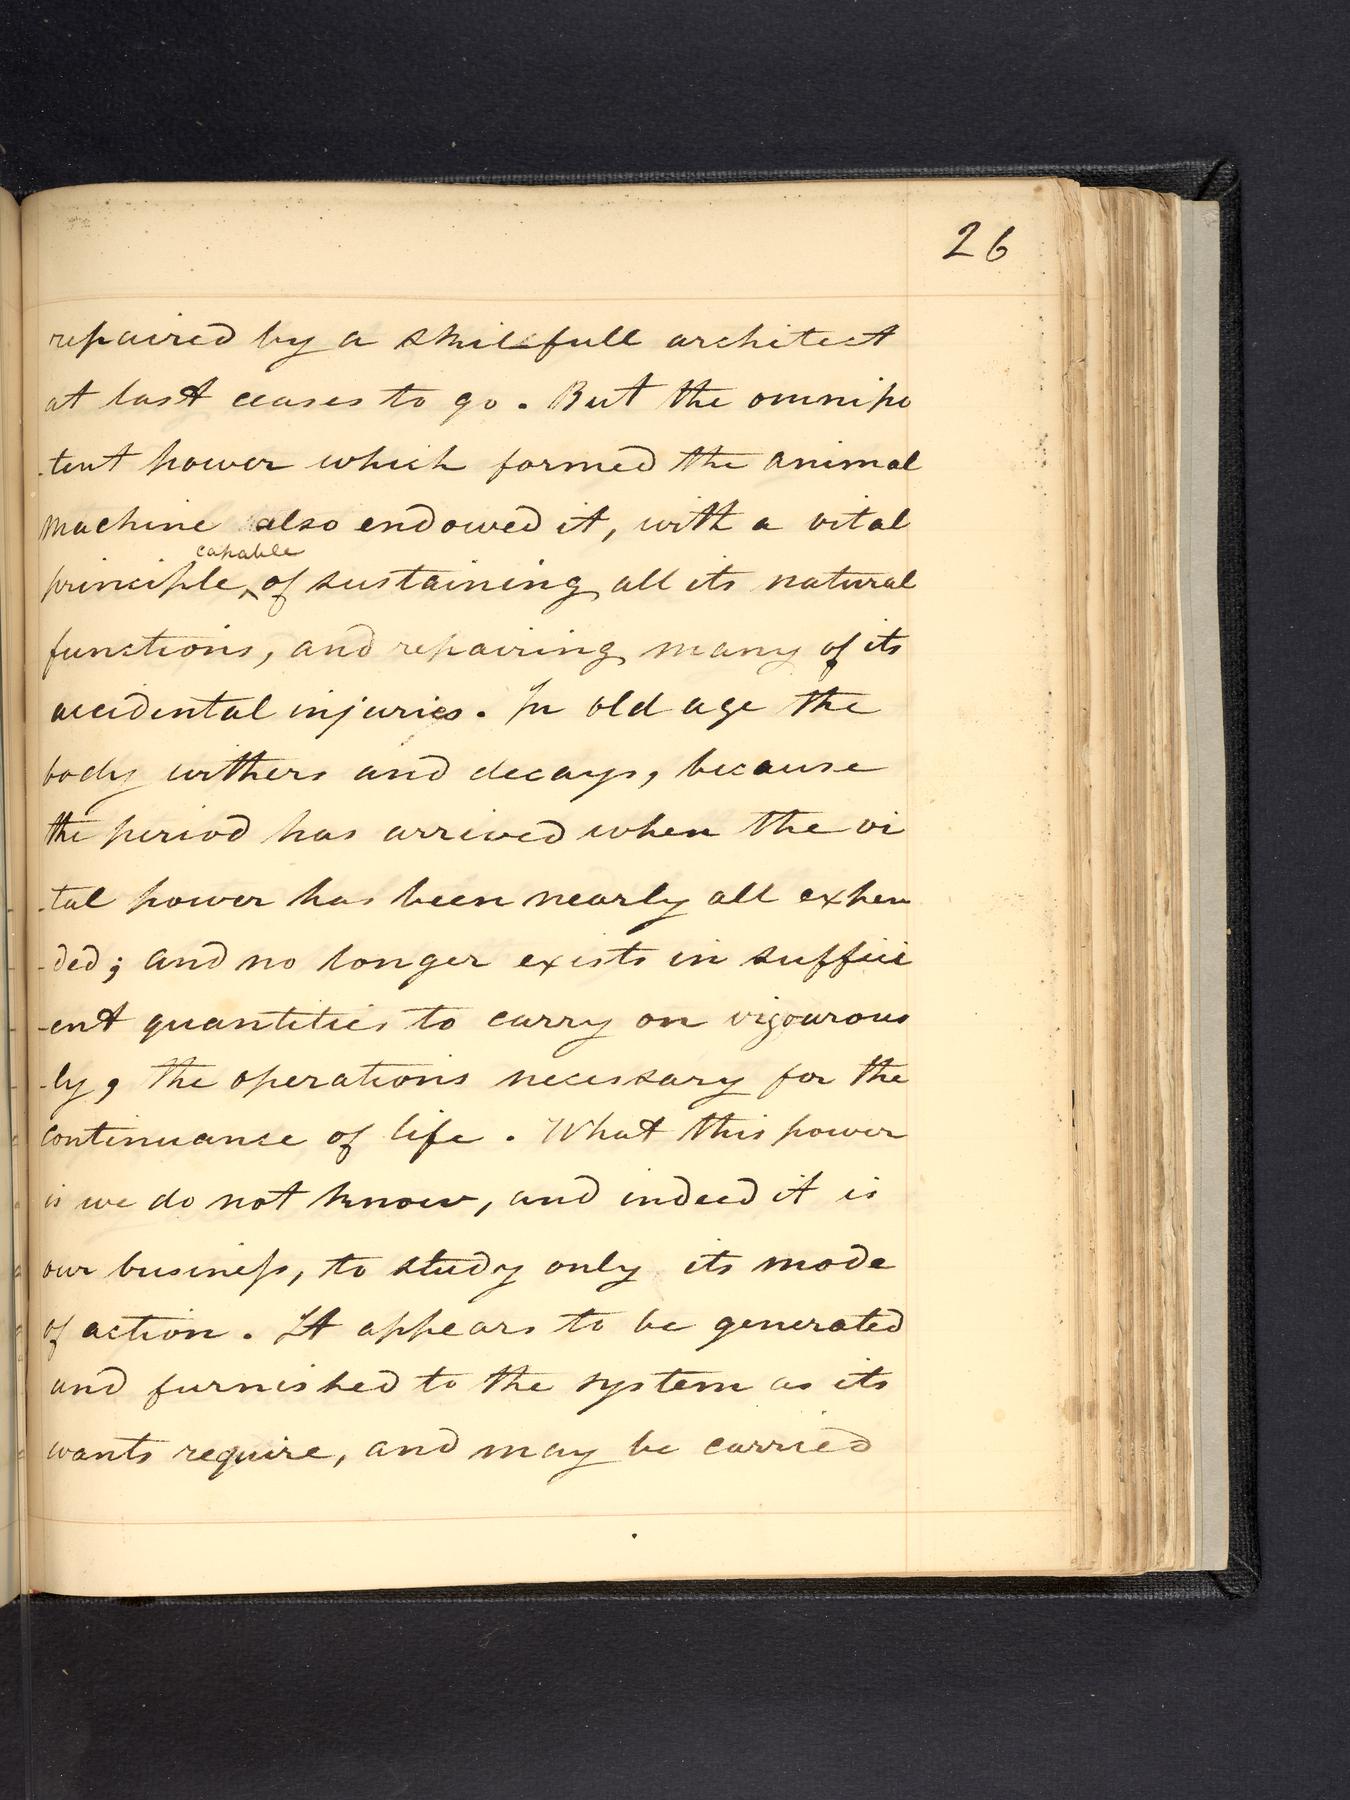 26
repaired by a skillfull architect
at last ceases to go. But the omnipo
-tent power which formed the animal
machine also endowed it, with a vital
capable
principle^ of sustaining all its natural
functions, and repairing many of its
accidental injuries. In old age the
body withers and decays, because
the period has arrived when the vi
-tal power has been nearly all expen
-ded; and no longer exists in suffici
-ent quantities to carry on vigourous
-ly, the operations necessary for the
continuance of life. What this power
is we do not know, and indeed it is
our businefs, to study only its mode
of action. It appears to be generated
and furnished to the system as its
wants require, and may be carried